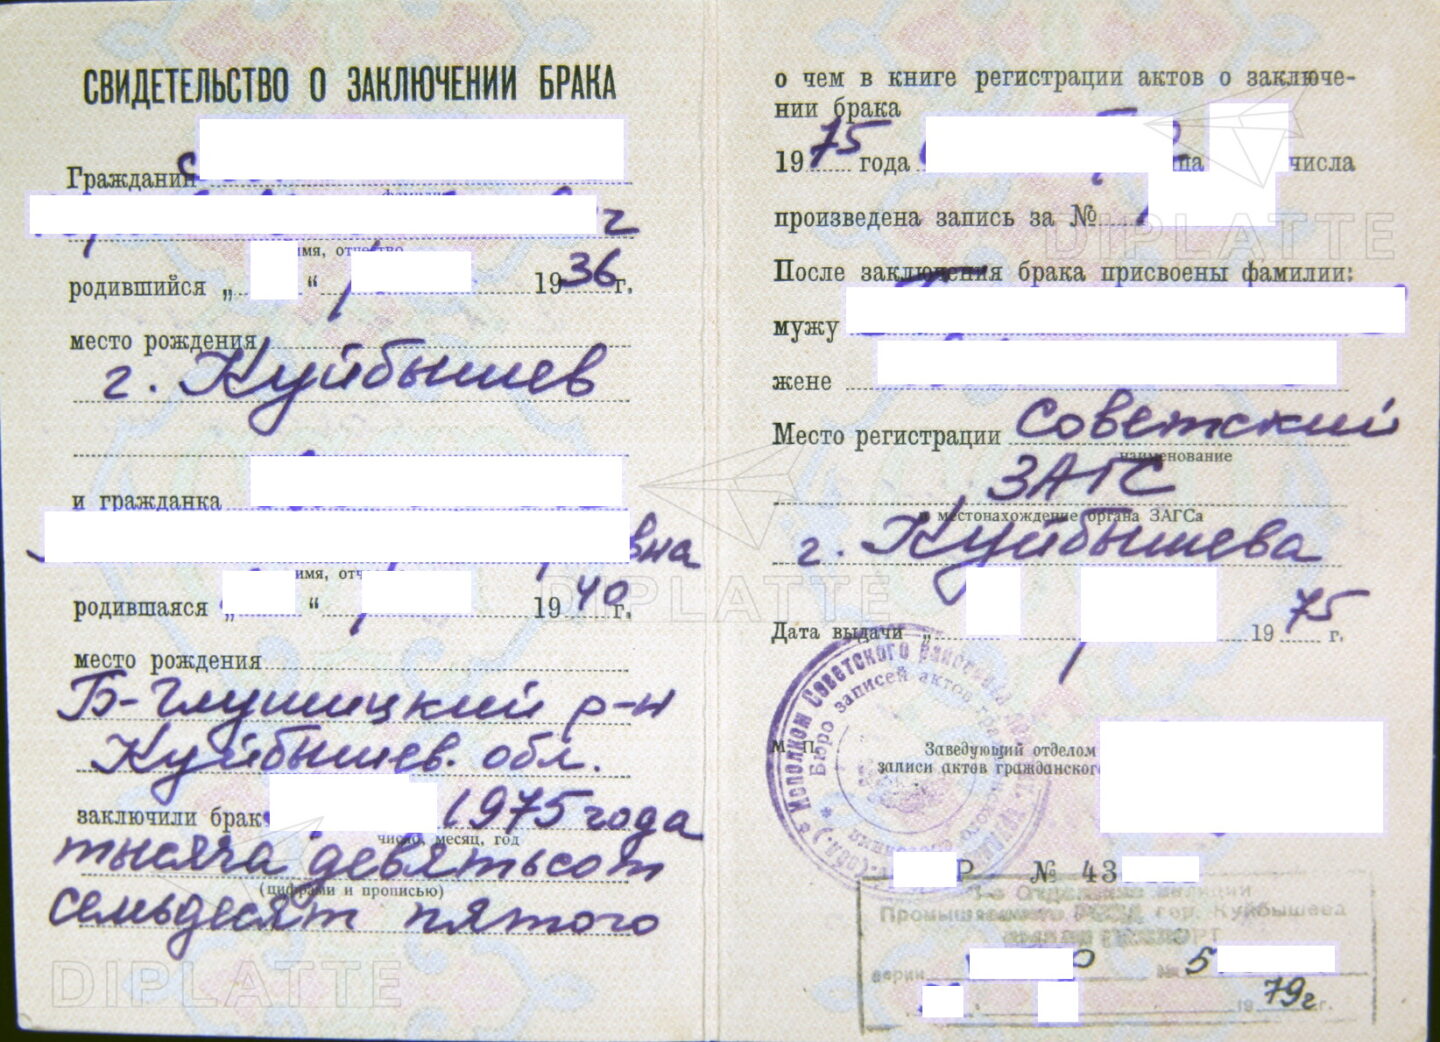 СВИДЕТЕЛЬСТВО О ЗАКЛЮЧЕНИИ БРАКА
Гражданин
родившийся „ “ 1936 г.
место рождения
г. Куйбышев
и гражданка
вна
имя,
родившаяся „ “ 1940 г.
место рождения
Б-Глушицкий р-н
Куйбышев. обл.
заключили брак 1975 года
число, месяц, год
тысяча девятьсот
(цифрами и прописью)
семьдесят пятого
DIPLATTE
о чем в книге регистрации актов о заключе-
нии брака
1975 года числа
произведена запись за №
DIPLATTE
После заключения брака присвоены фамилии:
мужу
жене
Место регистрации Советский
наименование
ЗАГС
и местонахождение органа ЗАГСа
г. Куйбышева
DIPLATTE
Дата выдачи „ 1975 г.
Исполком Советского
Бюро записей актов
М. П.
Заведующий отделом
записи актов гражданского
Р № 43
1-е Отделение милиции
Промышленного РОВД гор. Куйбышева
серии № 5
1979 г.